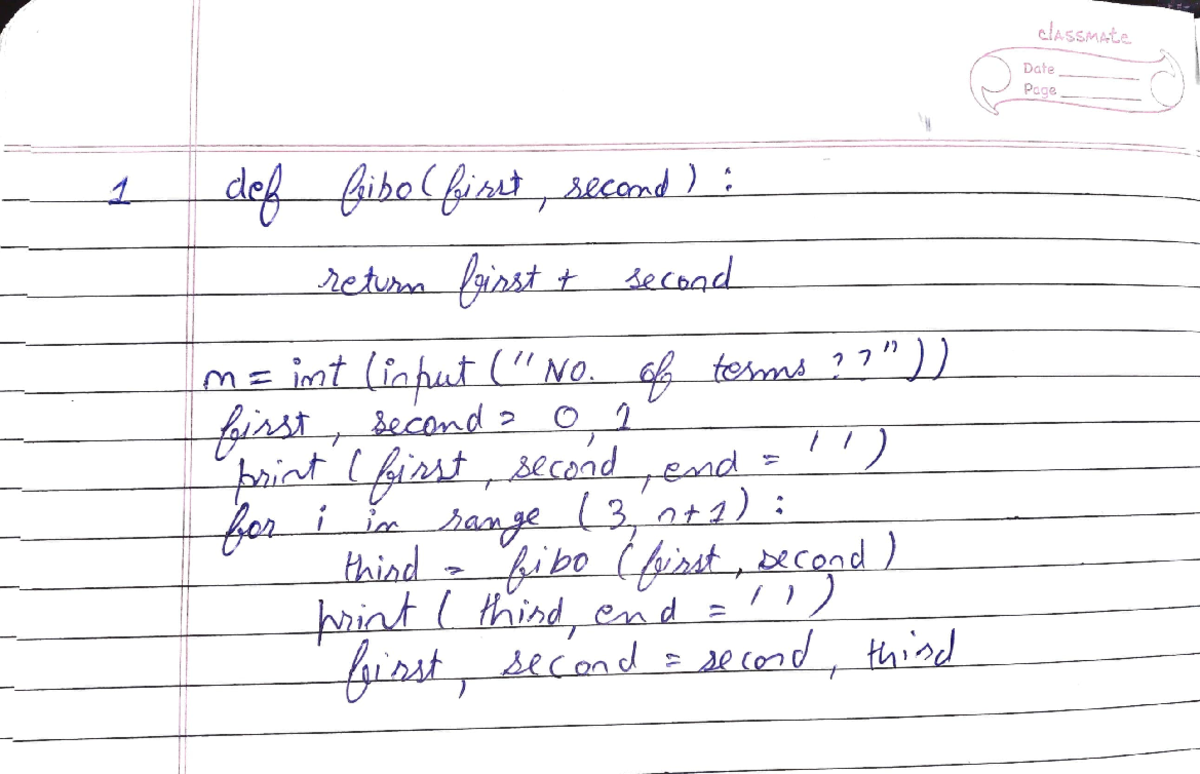 classmate
Date
Page
1 def fibo(first, second):
return first + second
n = int(input("No. of terms ??"))
first, second = 0, 1
print(first, second, end = ' ')
for i in range (3, n+1):
third = fibo (first, second)
print( third, end = ' ')
first, second = second, third